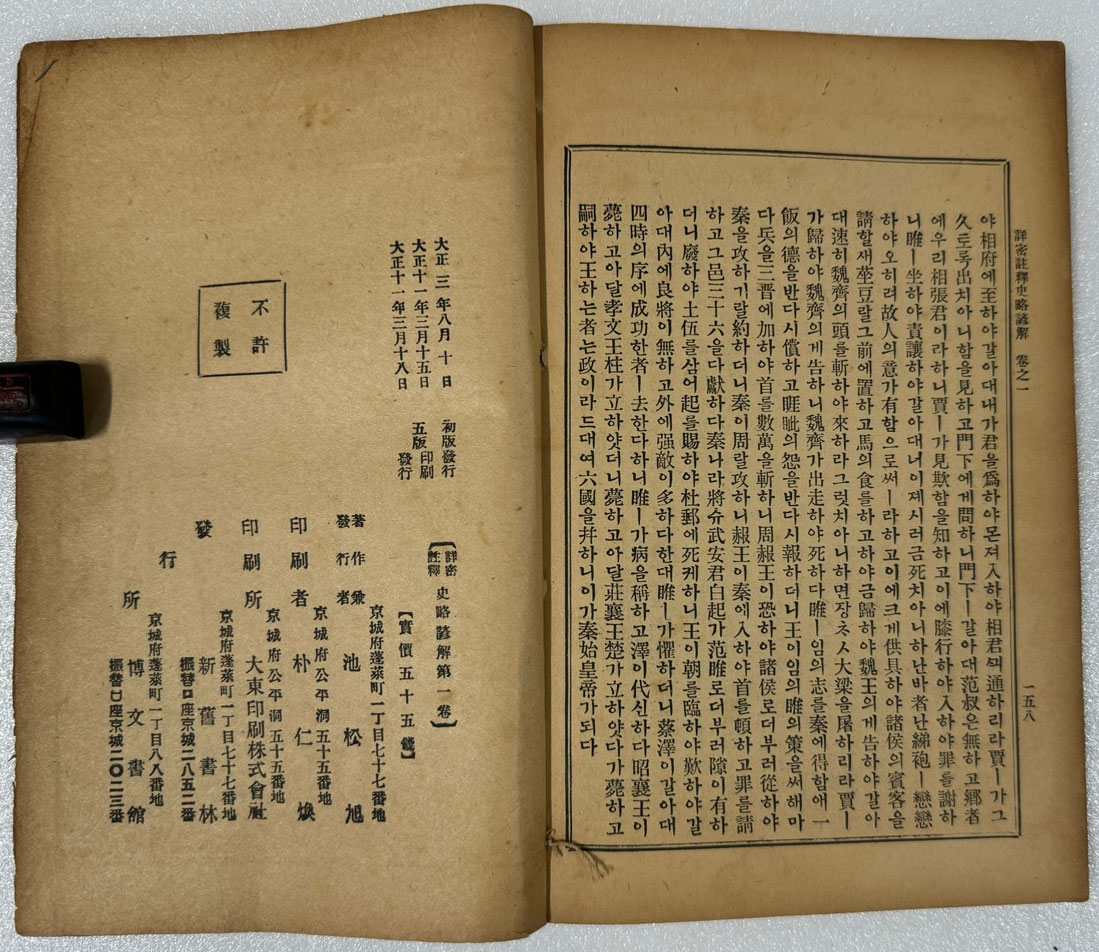 詳密註釋史略諺解 卷之一
一五八
야相府에至하야갈아대내가君을爲하야몬져入하야相君끠通하리라賈ㅣ가그
久토록出치아니함을見하고門下에게問하니門下ㅣ갈아대范叔은無하고鄕者
에우리相張君이라하니賈ㅣ가見欺함을知하고이에膝行하야入하야罪를謝하
니睢ㅣ坐하야責讓하야갈아대너이졔시러금死치아니하난바者난綈袍ㅣ戀戀
하야오히려故人의意가有함으로써ㅣ라하고이에크게供具하야諸侯의賓客을
請할새莝豆랄그前에置하고馬의食를하고하야금歸하야魏王의게告하야갈아
대速히魏齊의頭를斬하야來하라그럿치아니하면장ᄎᆞᆺ大梁을屠하리라賈ㅣ
가歸하야魏齊의게告하니魏齊가出走하야死하다睢ㅣ임의志를秦에得함애一
飯의德을반다시償하고睚眦의怨을반다시報하더니王이임의睢의策을써해마
다兵을三晋에加하야首를數萬을斬하니周赧王이恐하야諸侯로더부러從하야
秦을攻하기랄約하더니秦이周랄攻하니赧王이秦에入하야首를頓하고罪를請
하고그邑三十六을다獻하다秦나라將슈武安君白起가范睢로더부러隙이有하
더니廢하야土伍를삼어起를賜하야杜郵에死케하니王이朝를臨하야歎하야갈
아대內에良將이無하고外에强敵이多하다한대睢ㅣ가懼하더니蔡澤이갈아대
四時의序에成功한者ㅣ去한다하니睢ㅣ가病을稱하고澤이代신하다昭襄王이
薨하고아달孝文王柱가立하얏더니薨하고아달莊襄王楚가立하얏다가薨하고
嗣하야王하는者는政이라드대여六國을幷하니이가秦始皇帝가되다
大正三年八月十日 初版發行
大正十一年三月十五日 五版印刷
大正十一年三月十八日 發行
不許
複製
【詳密註釋 史略諺解第一卷】
【實價五十五錢】
京城府蓬萊町一丁目七十七番地
著作兼發行者 池松旭
京城府公平洞五十五番地
印刷者 朴仁煥
京城府公平洞五十五番地
印刷所 大東印刷株式會社
京城府蓬萊町一丁目七十七番地
發行所 新舊書林
振替口座京城二八五二番
京城府蓬萊町一丁目八八番地
博文書館
振替口座京城二〇二三番